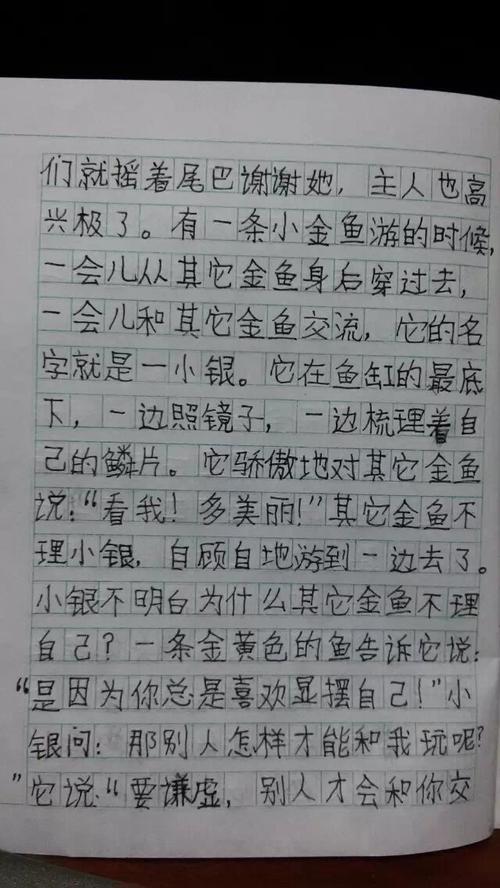 们就摇着尾巴谢谢她，主人也高
兴极了。有一条小金鱼游的时候，
一会儿从其它金鱼身后穿过去，
一会儿和其它金鱼交流，它的名
字就是一小银。它在鱼缸的最底
下，一边照镜子，一边梳理着自
己的鳞片。它骄傲地对其它金鱼
说：“看我！多美丽！”其它金鱼不
理小银，自顾自地游到一边去了。
小银不明白为什么其它金鱼不理
自己？一条金黄色的鱼告诉它说：
“是因为你总是喜欢显摆自己！”小
银问：那别人怎样才能和我玩呢？
”它说：“要谦虚，别人才会和你交